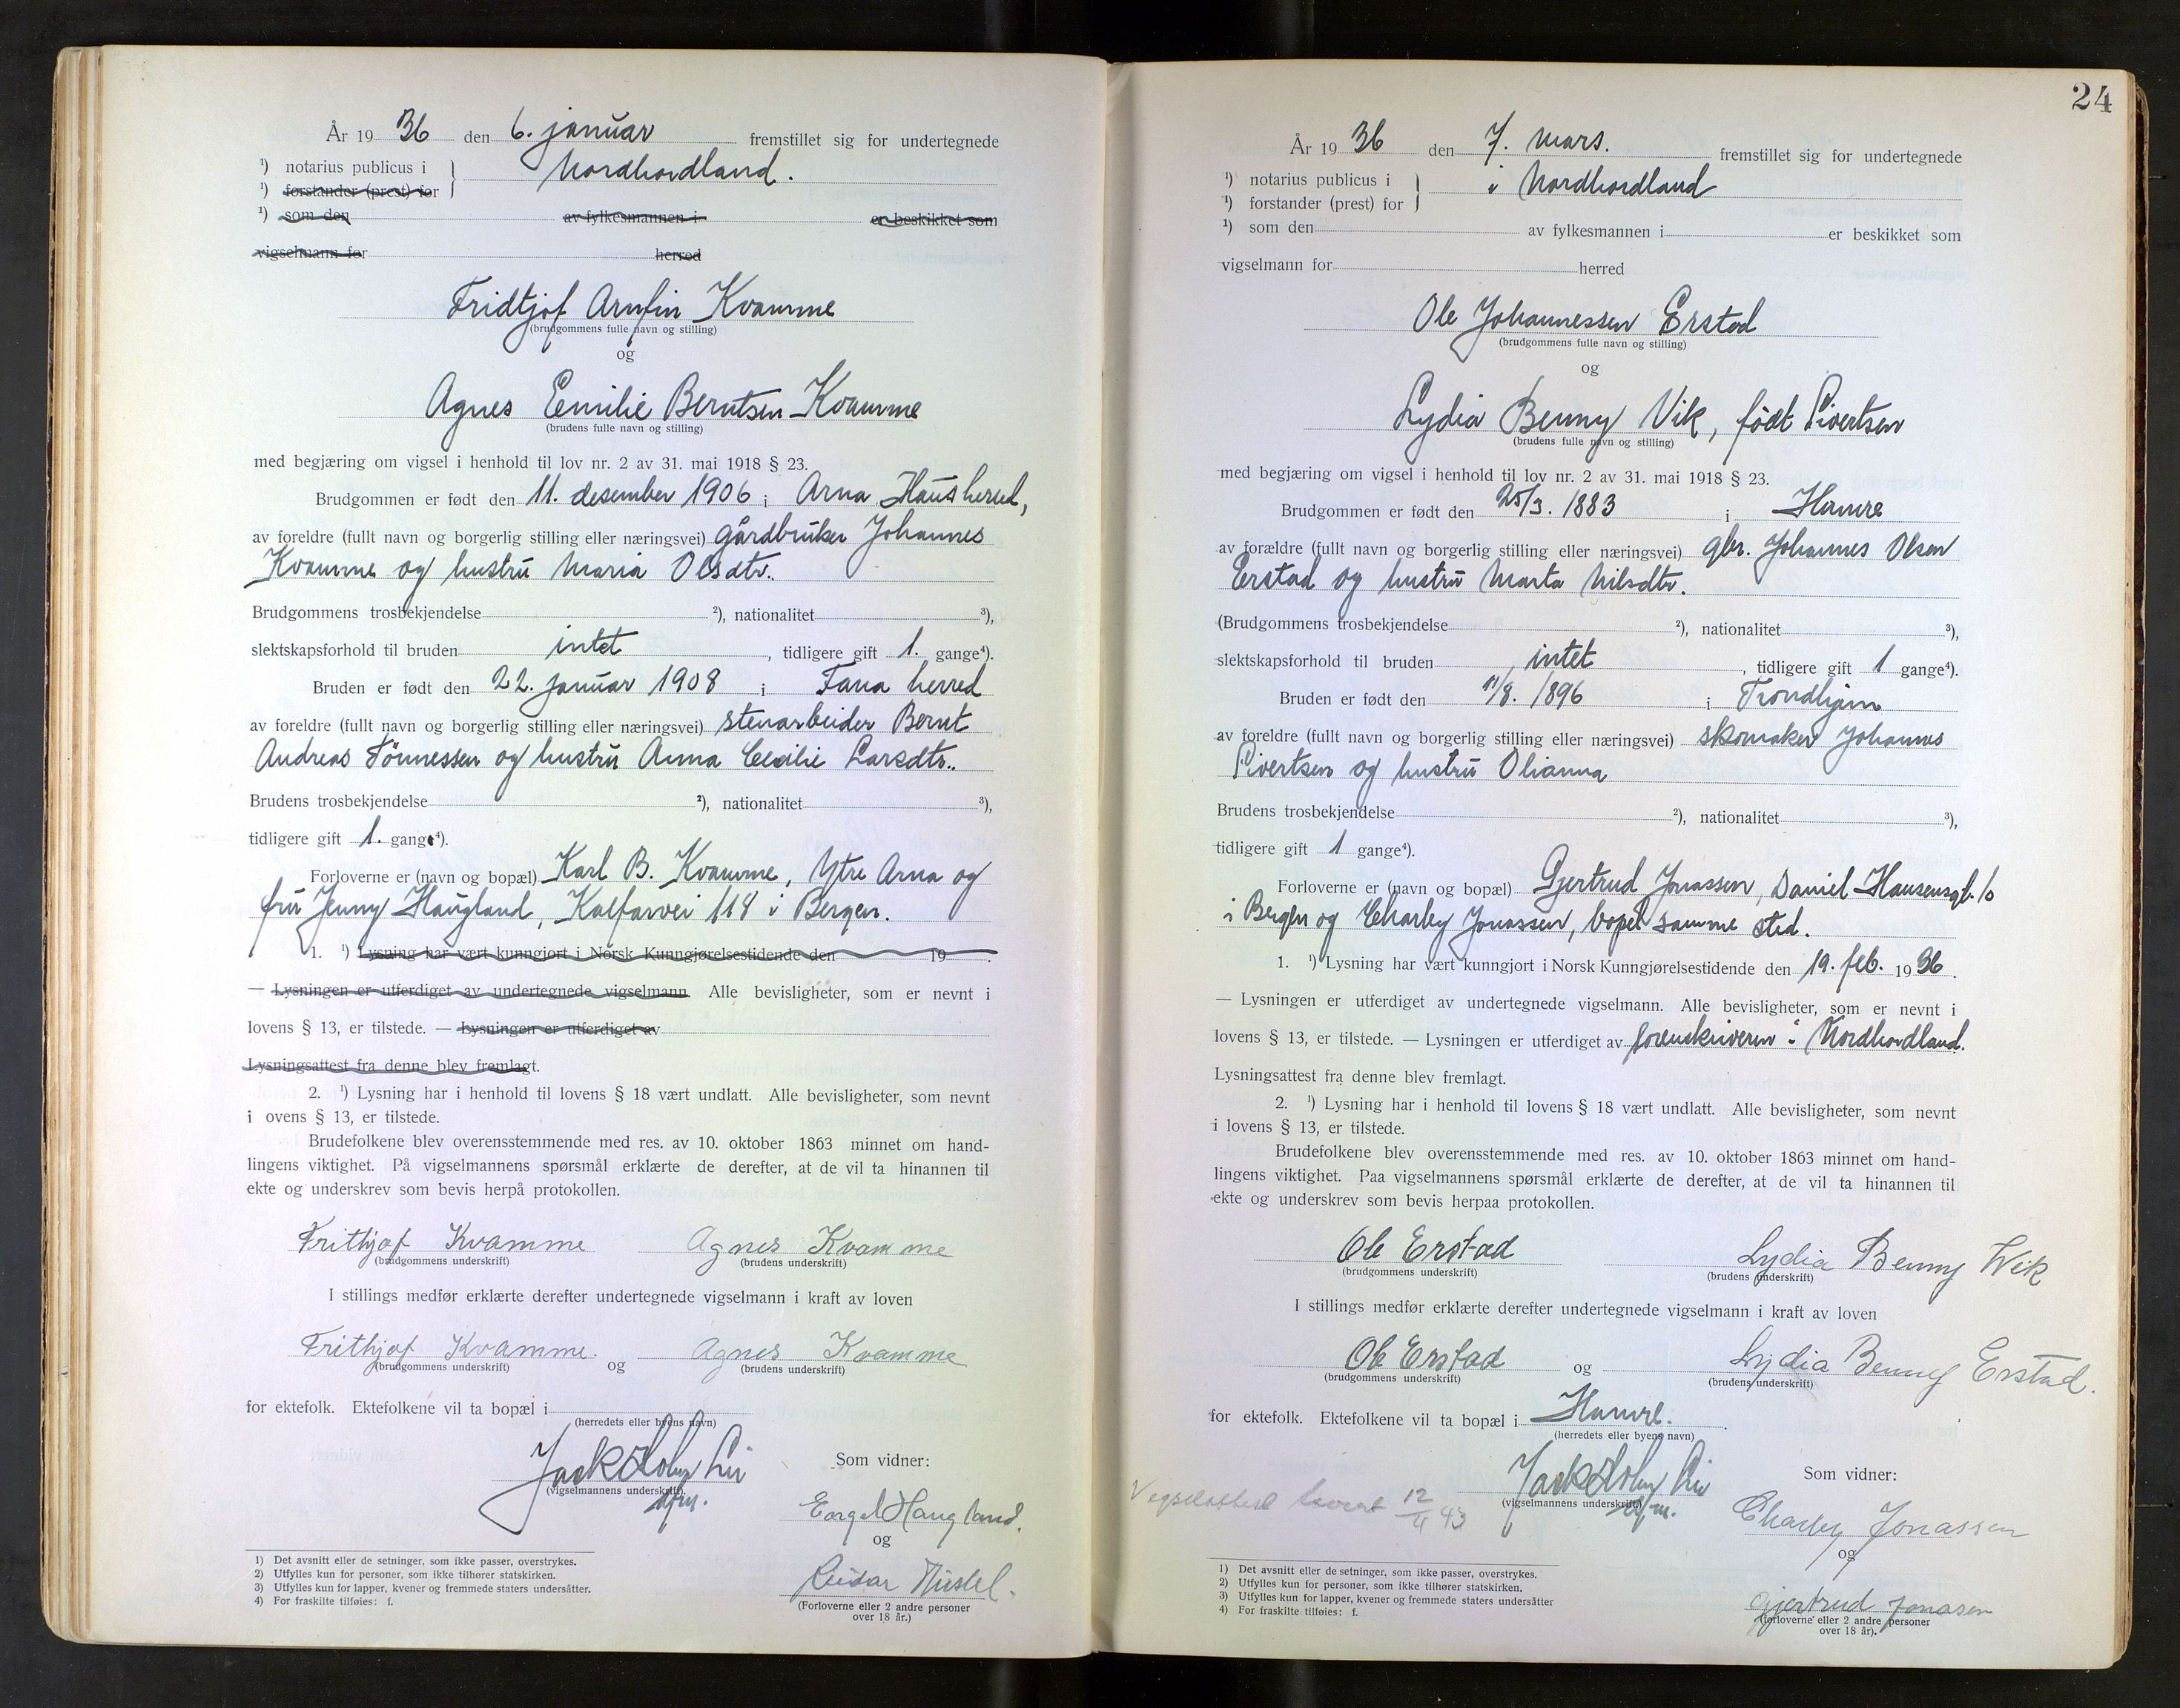 År 1936 den 6. januar fremstillet sig for undertegnede
¹) notarius publicus i } Nordhordland.
¹) forstander (prest) for
¹) som den av fylkesmannen i er beskikket som
vigselmann for herred
Fridtjof Arnfin Kvamme
(brudgommens fulle navn og stilling)
og
Agnes Emilie Berntsen Kvamme
(brudens fulle navn og stilling)
med begjæring om vigsel i henhold til lov nr. 2 av 31. mai 1918 § 23.
Brudgommen er født den 11. desember 1906 i Arna Haus herred,
av foreldre (fullt navn og borgerlig stilling eller næringsvei) gårdbruker Johannes
Kvamme og hustru Maria Olsdtr.
Brudgommens trosbekjendelse ²), nationalitet ³),
slektskapsforhold til bruden intet, tidligere gift 1. gange⁴).
Bruden er født den 22. januar 1908 i Fana herred
av foreldre (fullt navn og borgerlig stilling eller næringsvei) stenarbeider Bernt
Andreas Tönnessen og hustru Anna Cecilie Larsdtr..
Brudens trosbekjendelse ²), nationalitet ³),
tidligere gift 1. gange⁴).
Forloverne er (navn og bopæl) Karl B. Kvamme, Ytre Arna og
fru Jenny Haugland, Kalfarvei 118 i Bergen.
1. ¹) Lysning har vært kunngjort i Norsk Kunngjørelsestidende den 19 .
— Lysningen er utferdiget av undertegnede vigselmann. Alle bevisligheter, som er nevnt i
lovens § 13, er tilstede. — Lysningen er utferdiget av
Lysningsattest fra denne blev fremlagt.
2. ¹) Lysning har i henhold til lovens § 18 vært undlatt. Alle bevisligheter, som nevnt
i ovens § 13, er tilstede.
Brudefolkene blev overensstemmende med res. av 10. oktober 1863 minnet om hand-
lingens viktighet. På vigselmannens spørsmål erklærte de derefter, at de vil ta hinannen til
ekte og underskrev som bevis herpå protokollen.
Frithjof Kvamme Agnes Kvamme
(brudgommens underskrift) (brudens underskrift)
I stillings medfør erklærte derefter undertegnede vigselmann i kraft av loven
Frithjof Kvamme. og Agnes Kvamme
(brudgommens underskrift) (brudens underskrift)
for ektefolk. Ektefolkene vil ta bopæl i
(herredets eller byens navn)
(vigselmannens underskrift).
Som vidner:
Haugland.
og
Reidar
(Forloverne eller 2 andre personer
over 18 år.)
1) Det avsnitt eller de setninger, som ikke passer, overstrykes.
2) Utfylles kun for personer, som ikke tilhører statskirken.
3) Utfylles kun for lapper, kvener og fremmede staters undersåtter.
4) For fraskilte tilføies: f.
24
År 1936 den 7. mars. fremstillet sig for undertegnede
¹) notarius publicus i } i Nordhordland
¹) forstander (prest) for
¹) som den av fylkesmannen i er beskikket som
vigselmann for herred
Ole Johannessen Erstad
(brudgommens fulle navn og stilling)
og
Lydia Benny Vik, født Sivertsen
(brudens fulle navn og stilling)
med begjæring om vigsel i henhold til lov nr. 2 av 31. mai 1918 § 23.
Brudgommen er født den 25/3. 1883 i Hamre
av forældre (fullt navn og borgerlig stilling eller næringsvei) gbr. Johannes Olsen
Erstad og hustru Marta Nilsdtr.
(Brudgommens trosbekjendelse ²), nationalitet ³),
slektskapsforhold til bruden intet, tidligere gift 1 gange⁴).
Bruden er født den 11/8. 1896 i Trondhjem
av foreldre (fullt navn og borgerlig stilling eller næringsvei) skomaker Johannes
Sivertsen og hustru Olianna
Brudens trosbekjendelse ²), nationalitet ³),
tidligere gift 1 gange⁴).
Forloverne er (navn og bopæl) Gjertrud Jonassen, Daniel Hansensgt. 10
i Bergen og Charley Jonassen, bopel samme sted.
1. ¹) Lysning har vært kunngjort i Norsk Kunngjørelsestidende den 19. feb. 1936.
— Lysningen er utferdiget av undertegnede vigselmann. Alle bevisligheter, som er nevnt i
lovens § 13, er tilstede. — Lysningen er utferdiget av sorenskriveren i Nordhordland.
Lysningsattest fra denne blev fremlagt.
2. ¹) Lysning har i henhold til lovens § 18 vært undlatt. Alle bevisligheter, som nevnt
i lovens § 13, er tilstede.
Brudefolkene blev overensstemmende med res. av 10. oktober 1863 minnet om hand-
lingens viktighet. Paa vigselmannens spørsmål erklærte de derefter, at de vil ta hinannen til
ekte og underskrev som bevis herpaa protokollen.
Ole Erstad Lydia Benny Wik
(brudgommens underskrift) (brudens underskrift)
I stillings medfør erklærte derefter undertegnede vigselmann i kraft av loven
Ole Erstad og Lydia Benny Erstad.
(brudgommens underskrift) (brudens underskrift)
for ektefolk. Ektefolkene vil ta bopæl i Hamre.
(herredets eller byens navn)
Vigselattest levert 12/11 43
(vigselmannens underskrift)
Som vidner:
Charley Jonassen
og
Gjertrud Jonasen
(forloverne eller 2 andre personer
over 18 år).
1) Det avsnitt eller de setninger, som ikke passer, overstrykes.
2) Utfylles kun for personer, som ikke tilhører statskirken.
3) Utfylles kun for lapper, kvener og fremmede staters undersåtter
4) For fraskilte tilføies: f.